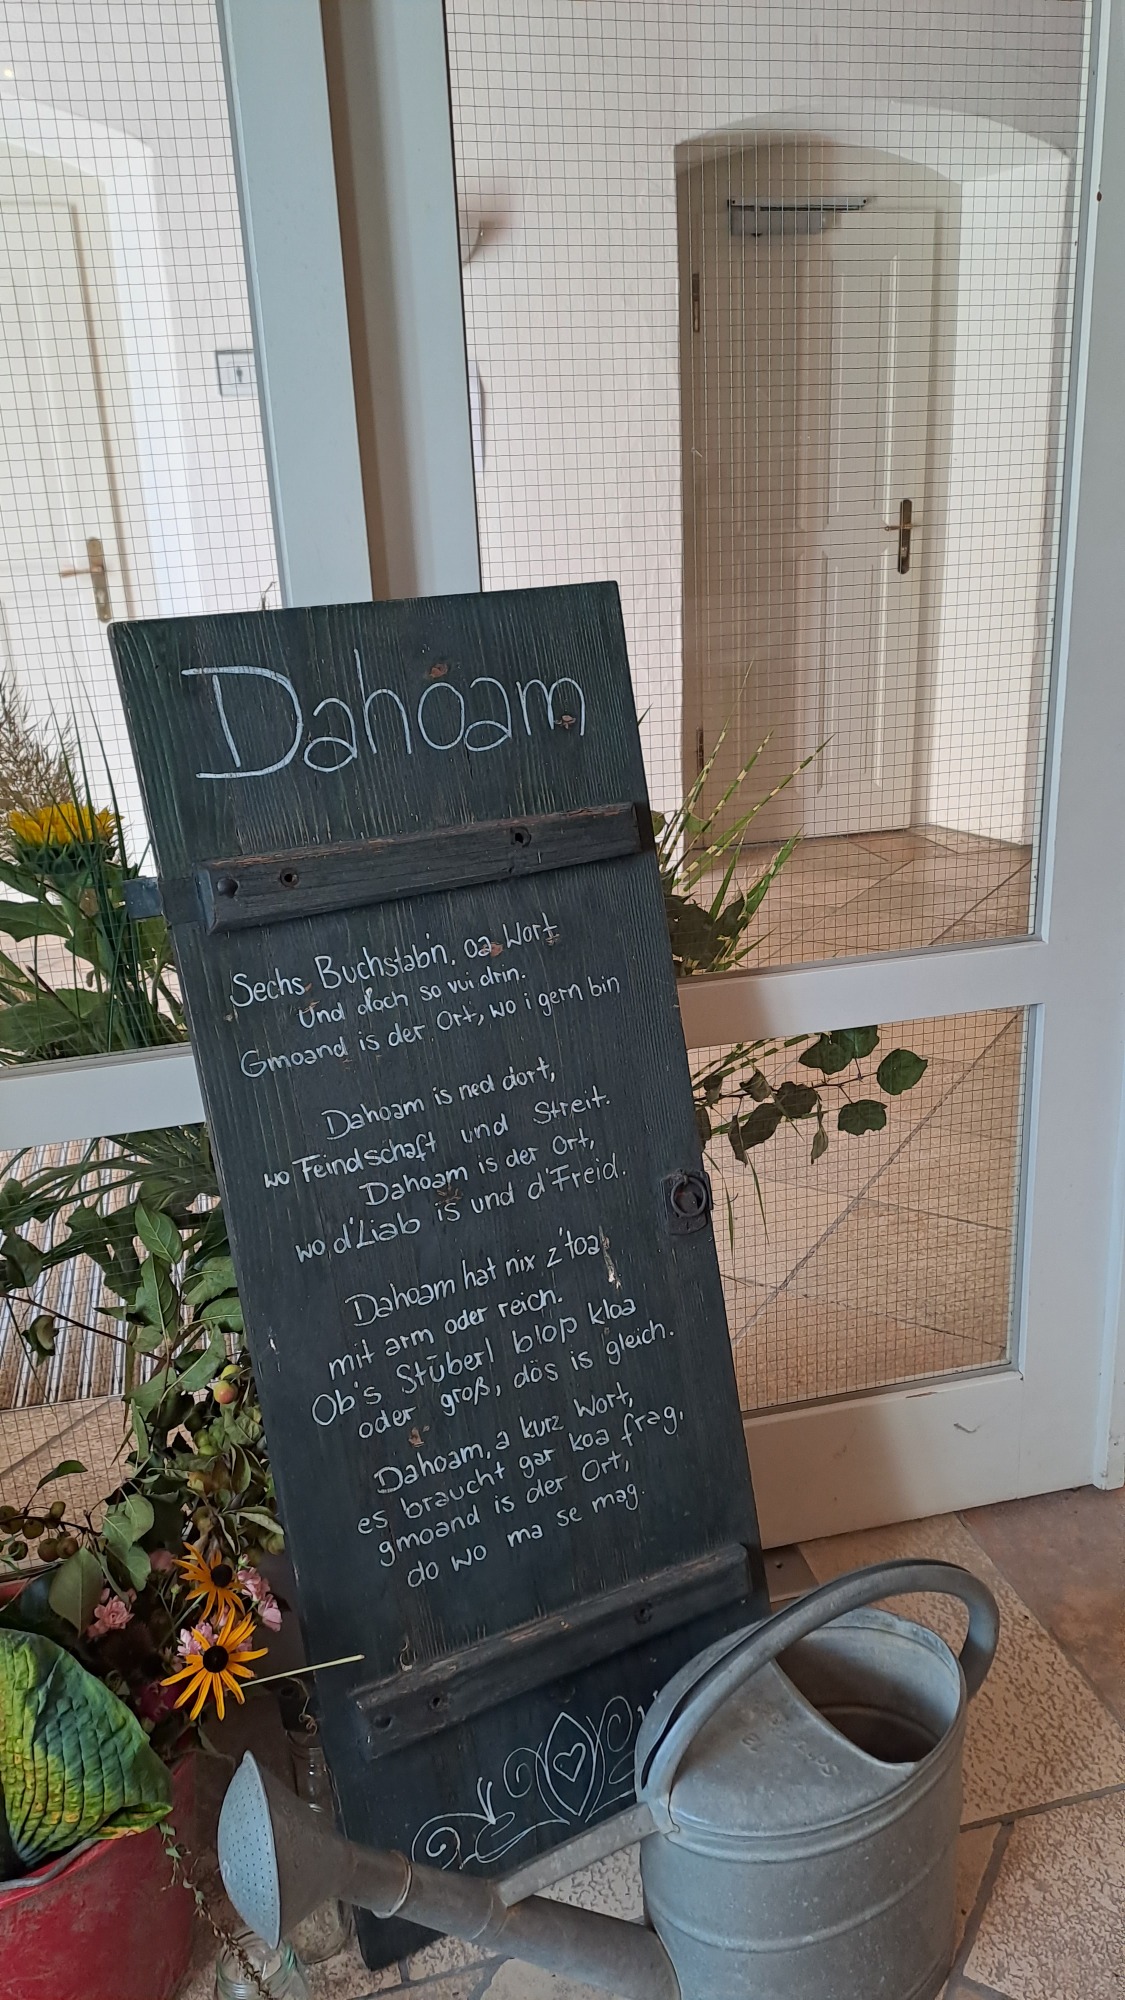 Dahoam
Sechs Buchstab'n, oa Wort
Und doch so vui drin.
Gmoand is der Ort, wo i gern bin
Dahoam is ned dort,
wo Feindschaft und Streit.
Dahoam is der Ort,
wo d'Liab is und d'Freid.
Dahoam hat nix z'toa
mit arm oder reich.
Ob's Stüberl blop kloa
oder groß, dös is gleich.
Dahoam, a kurz Wort,
es braucht gar koa frag,
gmoand is der Ort,
do wo ma se mag.